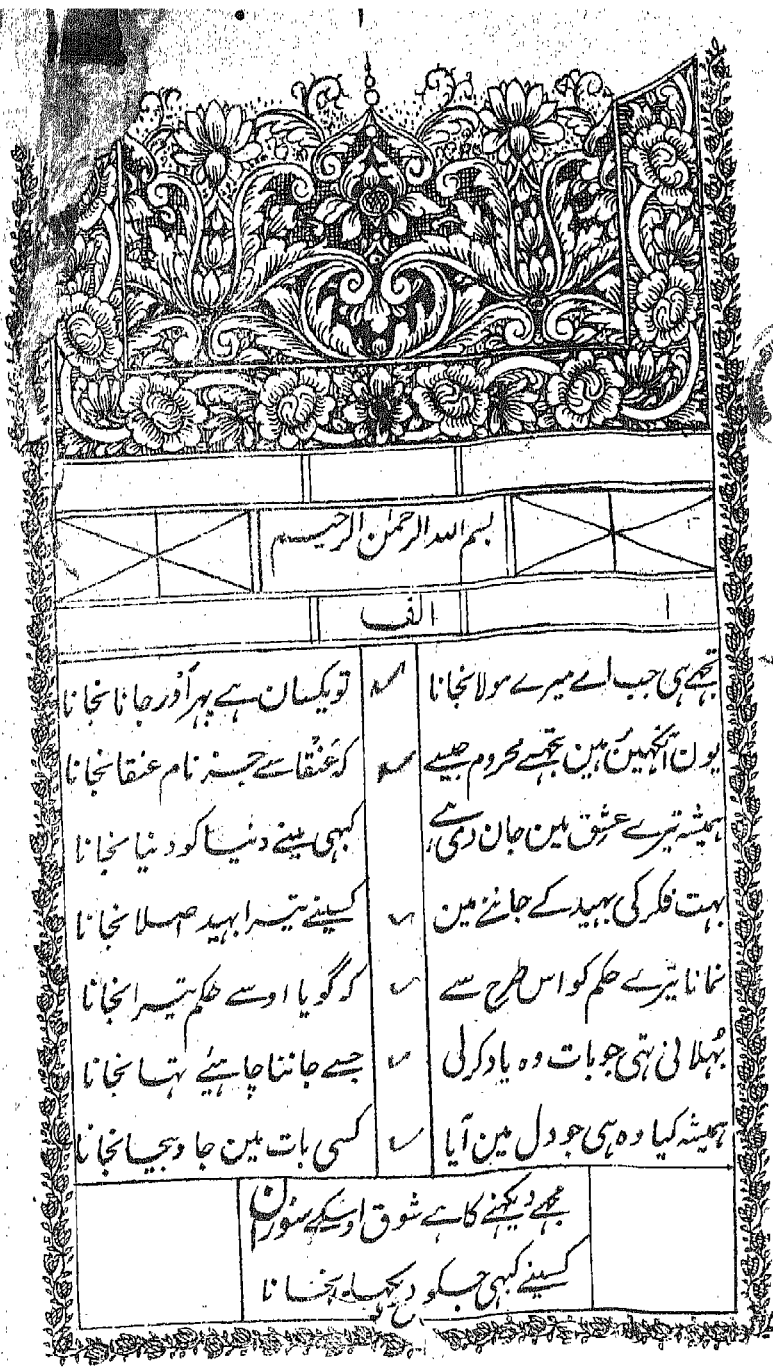 بسم اللہ الرحمٰن الرحیم
الف
تجھے ہی جب اے میرے مولا نجانا تو یکسان ہے پہر اَوْر جانا نجانا
یون آنکھین ہین تجھسے محروم جیسے کہ عَنْقا سے جز نام عنقا نجانا
ہمیشہ تیرے عشق مین جان دی ہے کبہی مینے دنیا کو دنیا نجانا
بہت فکر کی بہید کے جاننے مین کسینے تیرا بہید اصلا نجانا
نمانا تیرے حکم کو اس طرح سے کہ گویا اوسے حکم تیرا نجانا
بُہلانی تہی جو بات وہ یاد کرلی جسے جاننا چاہیئے تہا نجانا
ہمیشہ کیا وہ ہی جو دل مین آیا کسی بات مین جا وبیجا نجانا
مجھے دیکہنے کا ہے شوق اوسکے
کسینے کبہی جسکو دیکہا نجانا